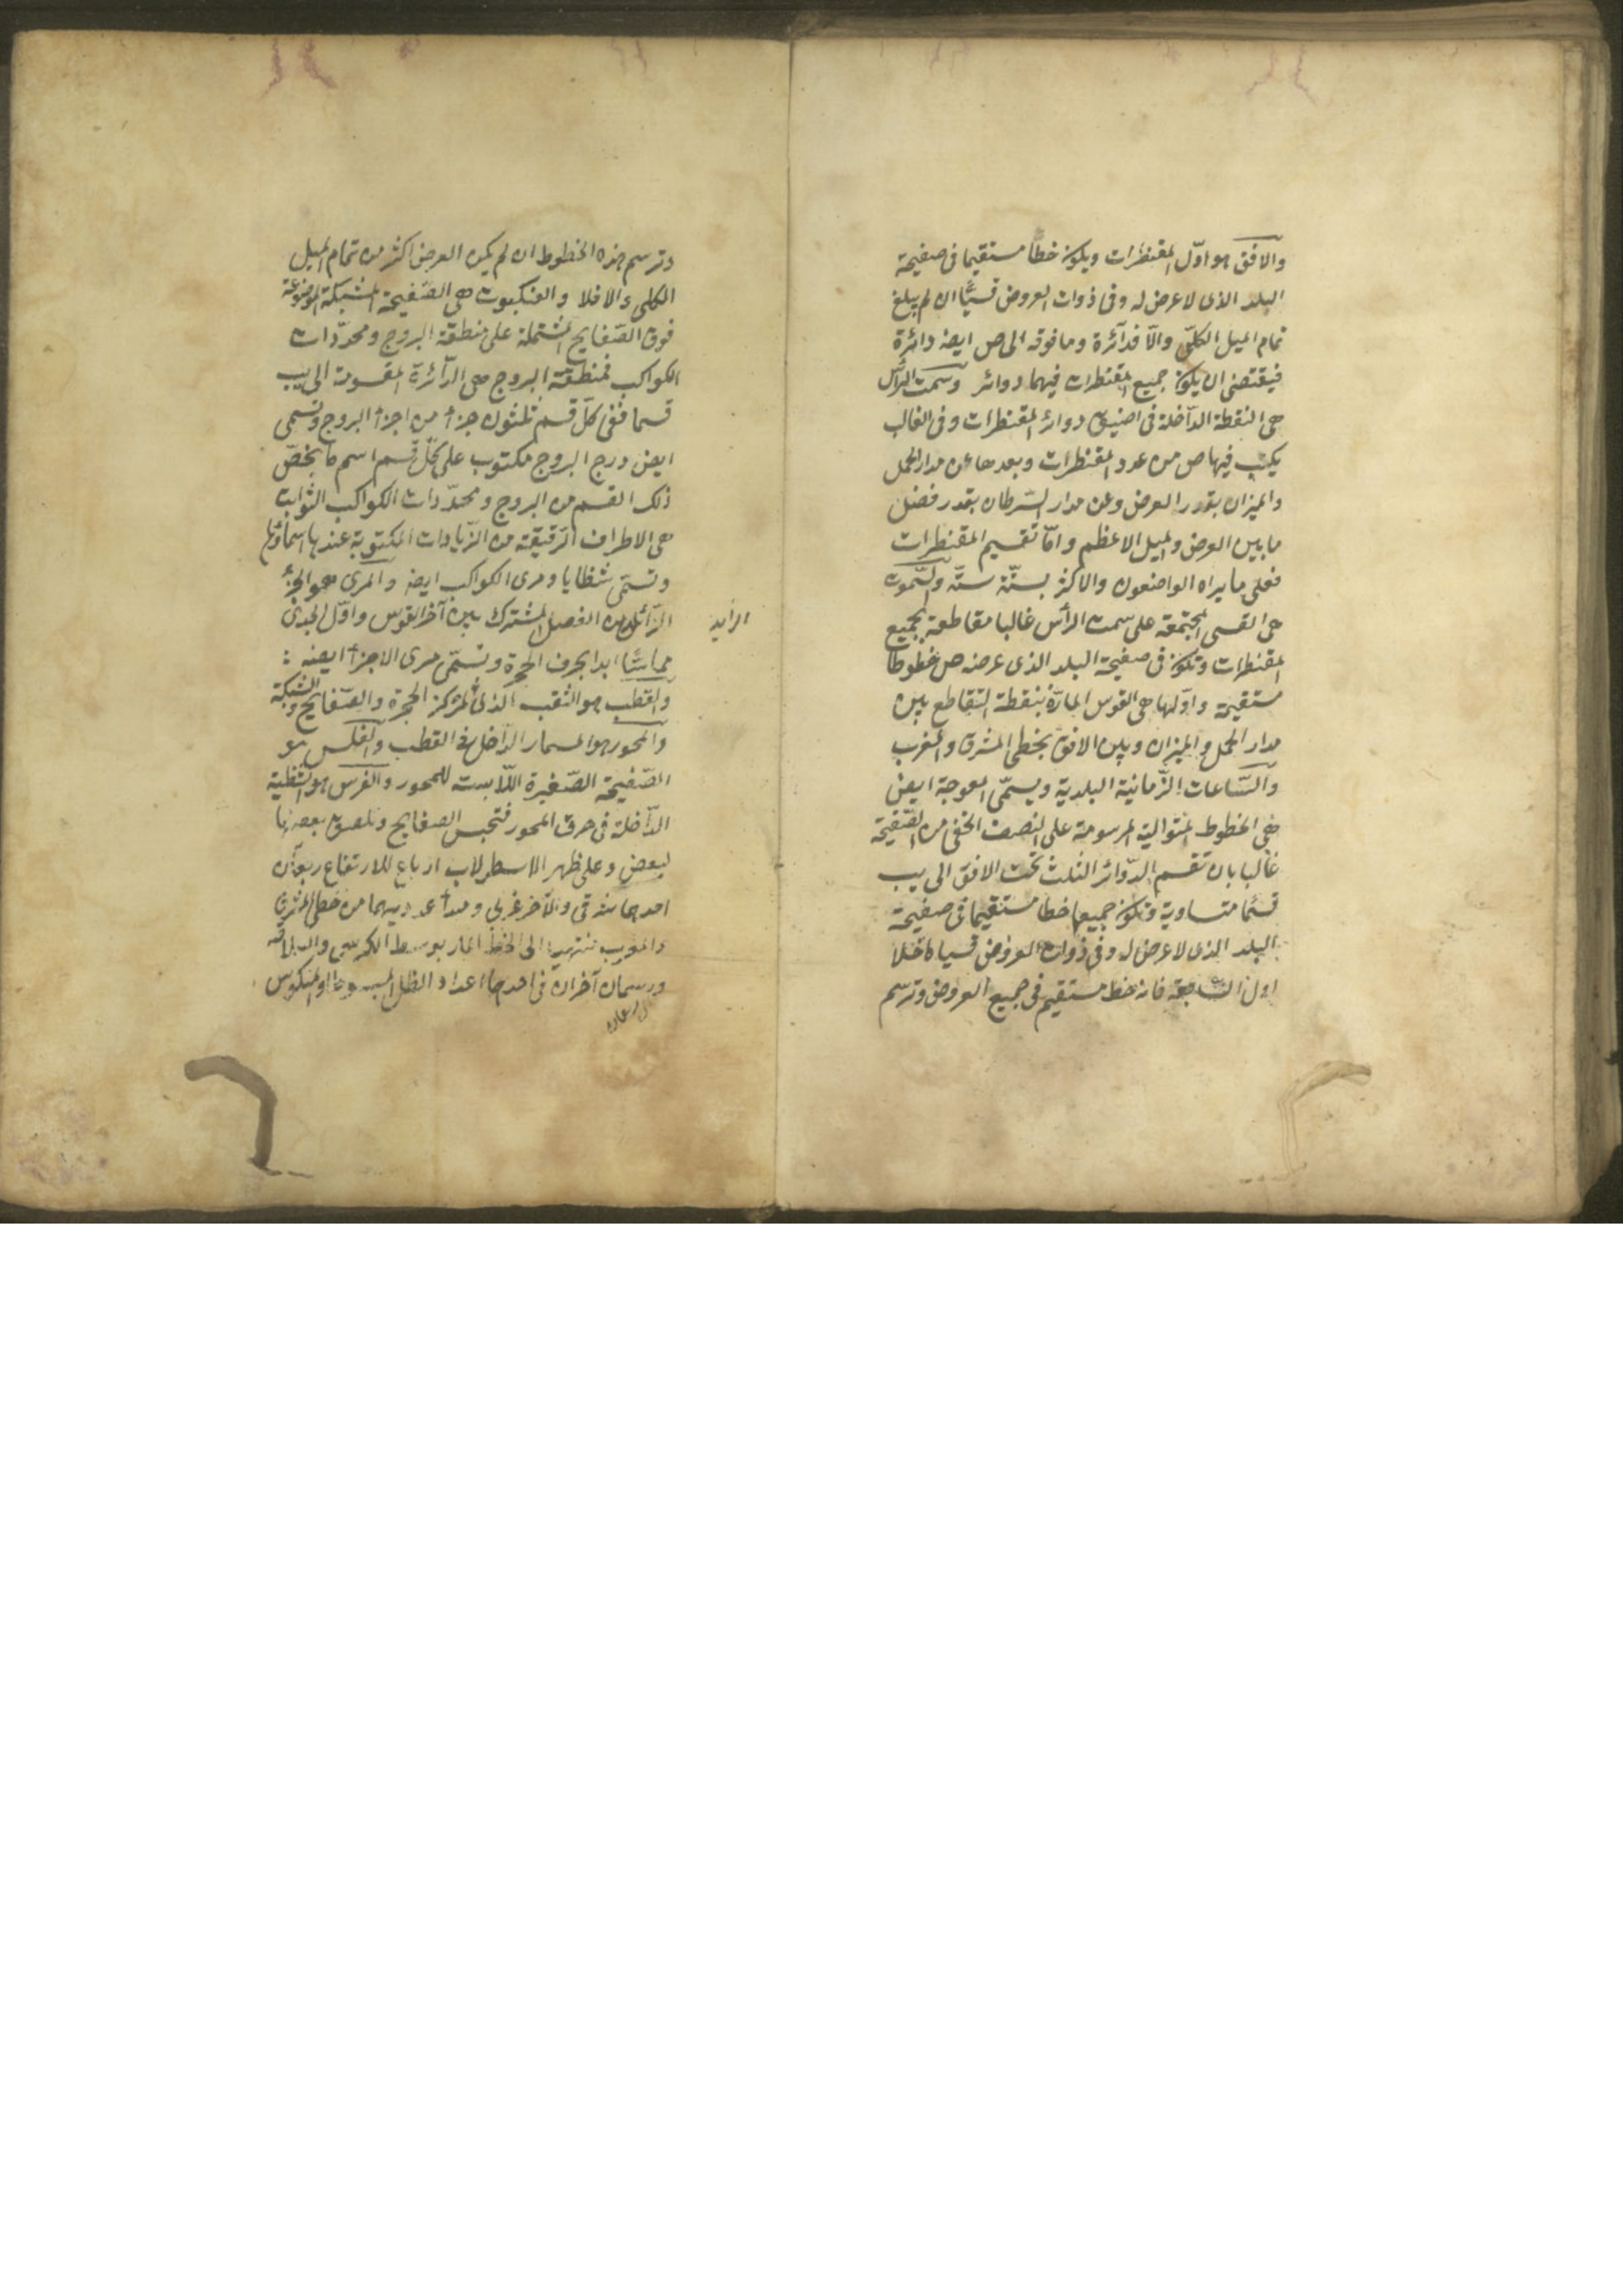 والافق هو اوّل المقنطرات ويكون خطا مستقيما فى صفيحة
البلد الذى لا عرض له وفى ذوات العروض قسيّا ان لم يبلغ
تمام الميل الكلّى والّا فدآئرة وما فوقه الى ص ايضه دائرة
فيقتضى ان يكون جميع المقنطرات فيهما دوائر وسمت الرأس
هى النقطة الدآخلة فى اضيق دوائر المقنطرات وفى الغالب
يكتب فيها ص من عدد المقنطرات وبعدها عن مدار الحمل
والميزان بقدر العرض وعن مدار السّرطان بقدر فضل
ما بين العرض والميل الاعظم وامّا تقسيم المقنطرات
فعلى ما يراه الواضعون والاكثر بستّة ستّة والسّموت
هى القسى المجتمعة على سمت الرأس غالبا مقاطعة لجميع
المقنطرات وتكون فى صفيحة البلد الذى عرضه ص خطوطا
مستقيمة واوّلها هى القوس المارّة بنقطة التقاطع بين
مدار الحمل والميزان وبين الافق بخطى المشرق والمغرب
والسّاعات الزّمانية البلدية ويسمّى المعوجة ايضى
هى الخطوط المتوالية المرسومة على النصف الخفى من الصّفيحة
غالبا بان تقسم الدّوائر الثلث تحت الافق الى يب
قسّما متساوية وتكون جميعها خطا مستقيما فى صفيحة
البلد الذى لا عرض له وفى ذوات العروض قسيا ما خلا
اول السّابعة فانه خط مستقيم فى جميع العروض وترسم
وترسم هذه الخطوط ان لم يكن العرض اكثر من تمام الميل
الكلى والا فلا والعنكبوت هى الصّفيحة المشبكة الموضوعة
فوق الصّفايح المشتملة على منطقة البروج ومحدّدات
الكواكب فمنطقة البروج هى الدّآئرة المقسومة الى يب
قسما ففى كلّ قسم ثلثون جزأ من اجزأ البروج وتسمى
ايضى درج البروج مكتوب على كلّ قسم اسم ما يخصّ
ذلك القسم من البروج ومحدّدات الكواكب الثوابت
هى الاطراف الرّقيقة من الزّيادات المكتوبة عندها اسماؤها
وتسمّى شظايا ومرى الكواكب ايضه والمرى هو الجزء
الزّائل من الفصل المشترك بين آخر القوس واوّل الجدى
الزايد
مماسّا ابدا بحرف الحجرة وتسمّى مرى الاجزأ ايضه :
والقطب هو الثقب الذى لمركز الحجرة والصّفايح والشبكة
والمحور هو المسمار الدّاخل فى القطب والفلس هو
الصّفيحة الصّغيرة اللّابسة للمحور والفرس هو الشظية
الدّآخلة فى خرق المحور فتحبس الصفايح وتلصق بعضها
لبعض وعلى ظهر الاسطرلاب ارباع للارتفاع ربعان
احدهما شرقى والآخر غربى ومبدأ عدديهما من خطى المشرق
والمغرب منتهيا الى الخط المار بوسط الكرسى والعلاقة
ورسمان آخران فى احدهما اعداد الظل المبسوط او المنكوس